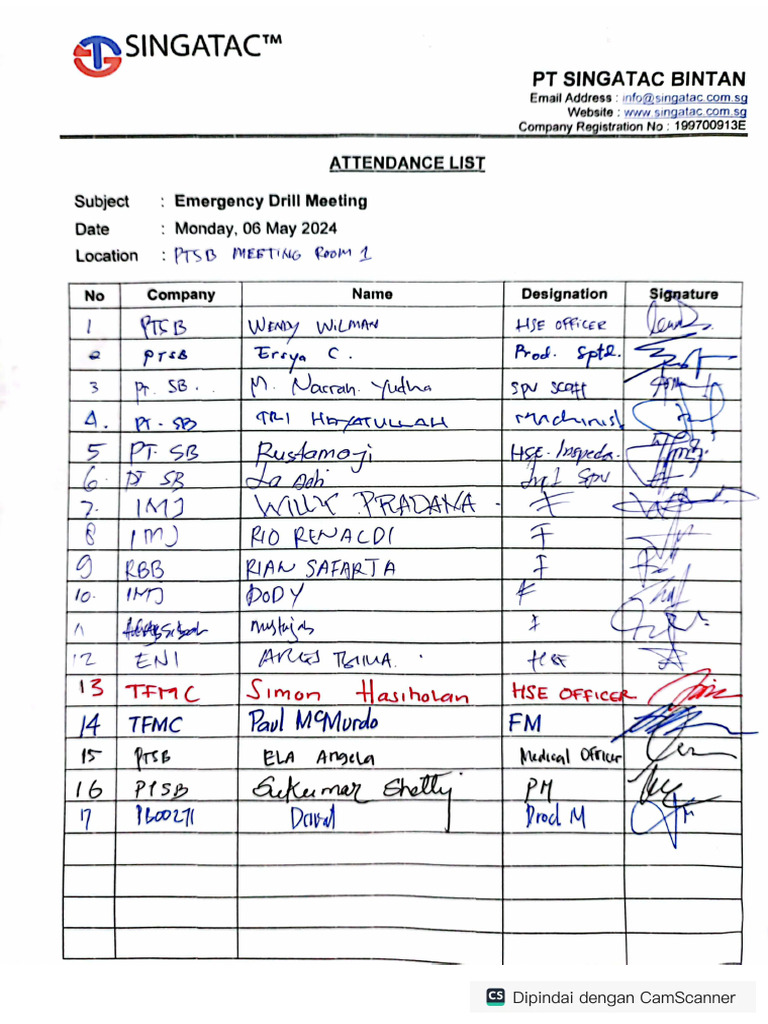 SINGATAC™
PT SINGATAC BINTAN
Email Address : info@singatac.com.sg
Website : www.singatac.com.sg
Company Registration No : 199700913E
ATTENDANCE LIST
Subject : Emergency Drill Meeting
Date : Monday, 06 May 2024
Location : PTSB MEETING ROOM 1
No Company Name Designation Signature
1 PTSB WENDY WILMAN HSE OFFICER
2 PTSB Ersya C. Prod. Sptd.
3 PT. SB. M. Narrah Yudha SPV SCAFF
4. PT. SB TRI HAYATULLAH Machinist
5 PT. SB Rustamoji HSE. Inspecto.
6. PT SB La Adi SPV
7. IMJ WILLY PRADANA F
8 IMJ RIO RENALDI F
9 RBB RIAN SAFARTA F
10. IMJ DODY F
11 F
12 ENI HSE
13 TFMC Simon Hasiholan HSE OFFICER
14 TFMC Paul McMurdo FM
15 PTSB ELA Angela Medical Officer
16 PTSB Sukumar Shetty PM
17 PB00271 Prod M
CS Dipindai dengan CamScanner